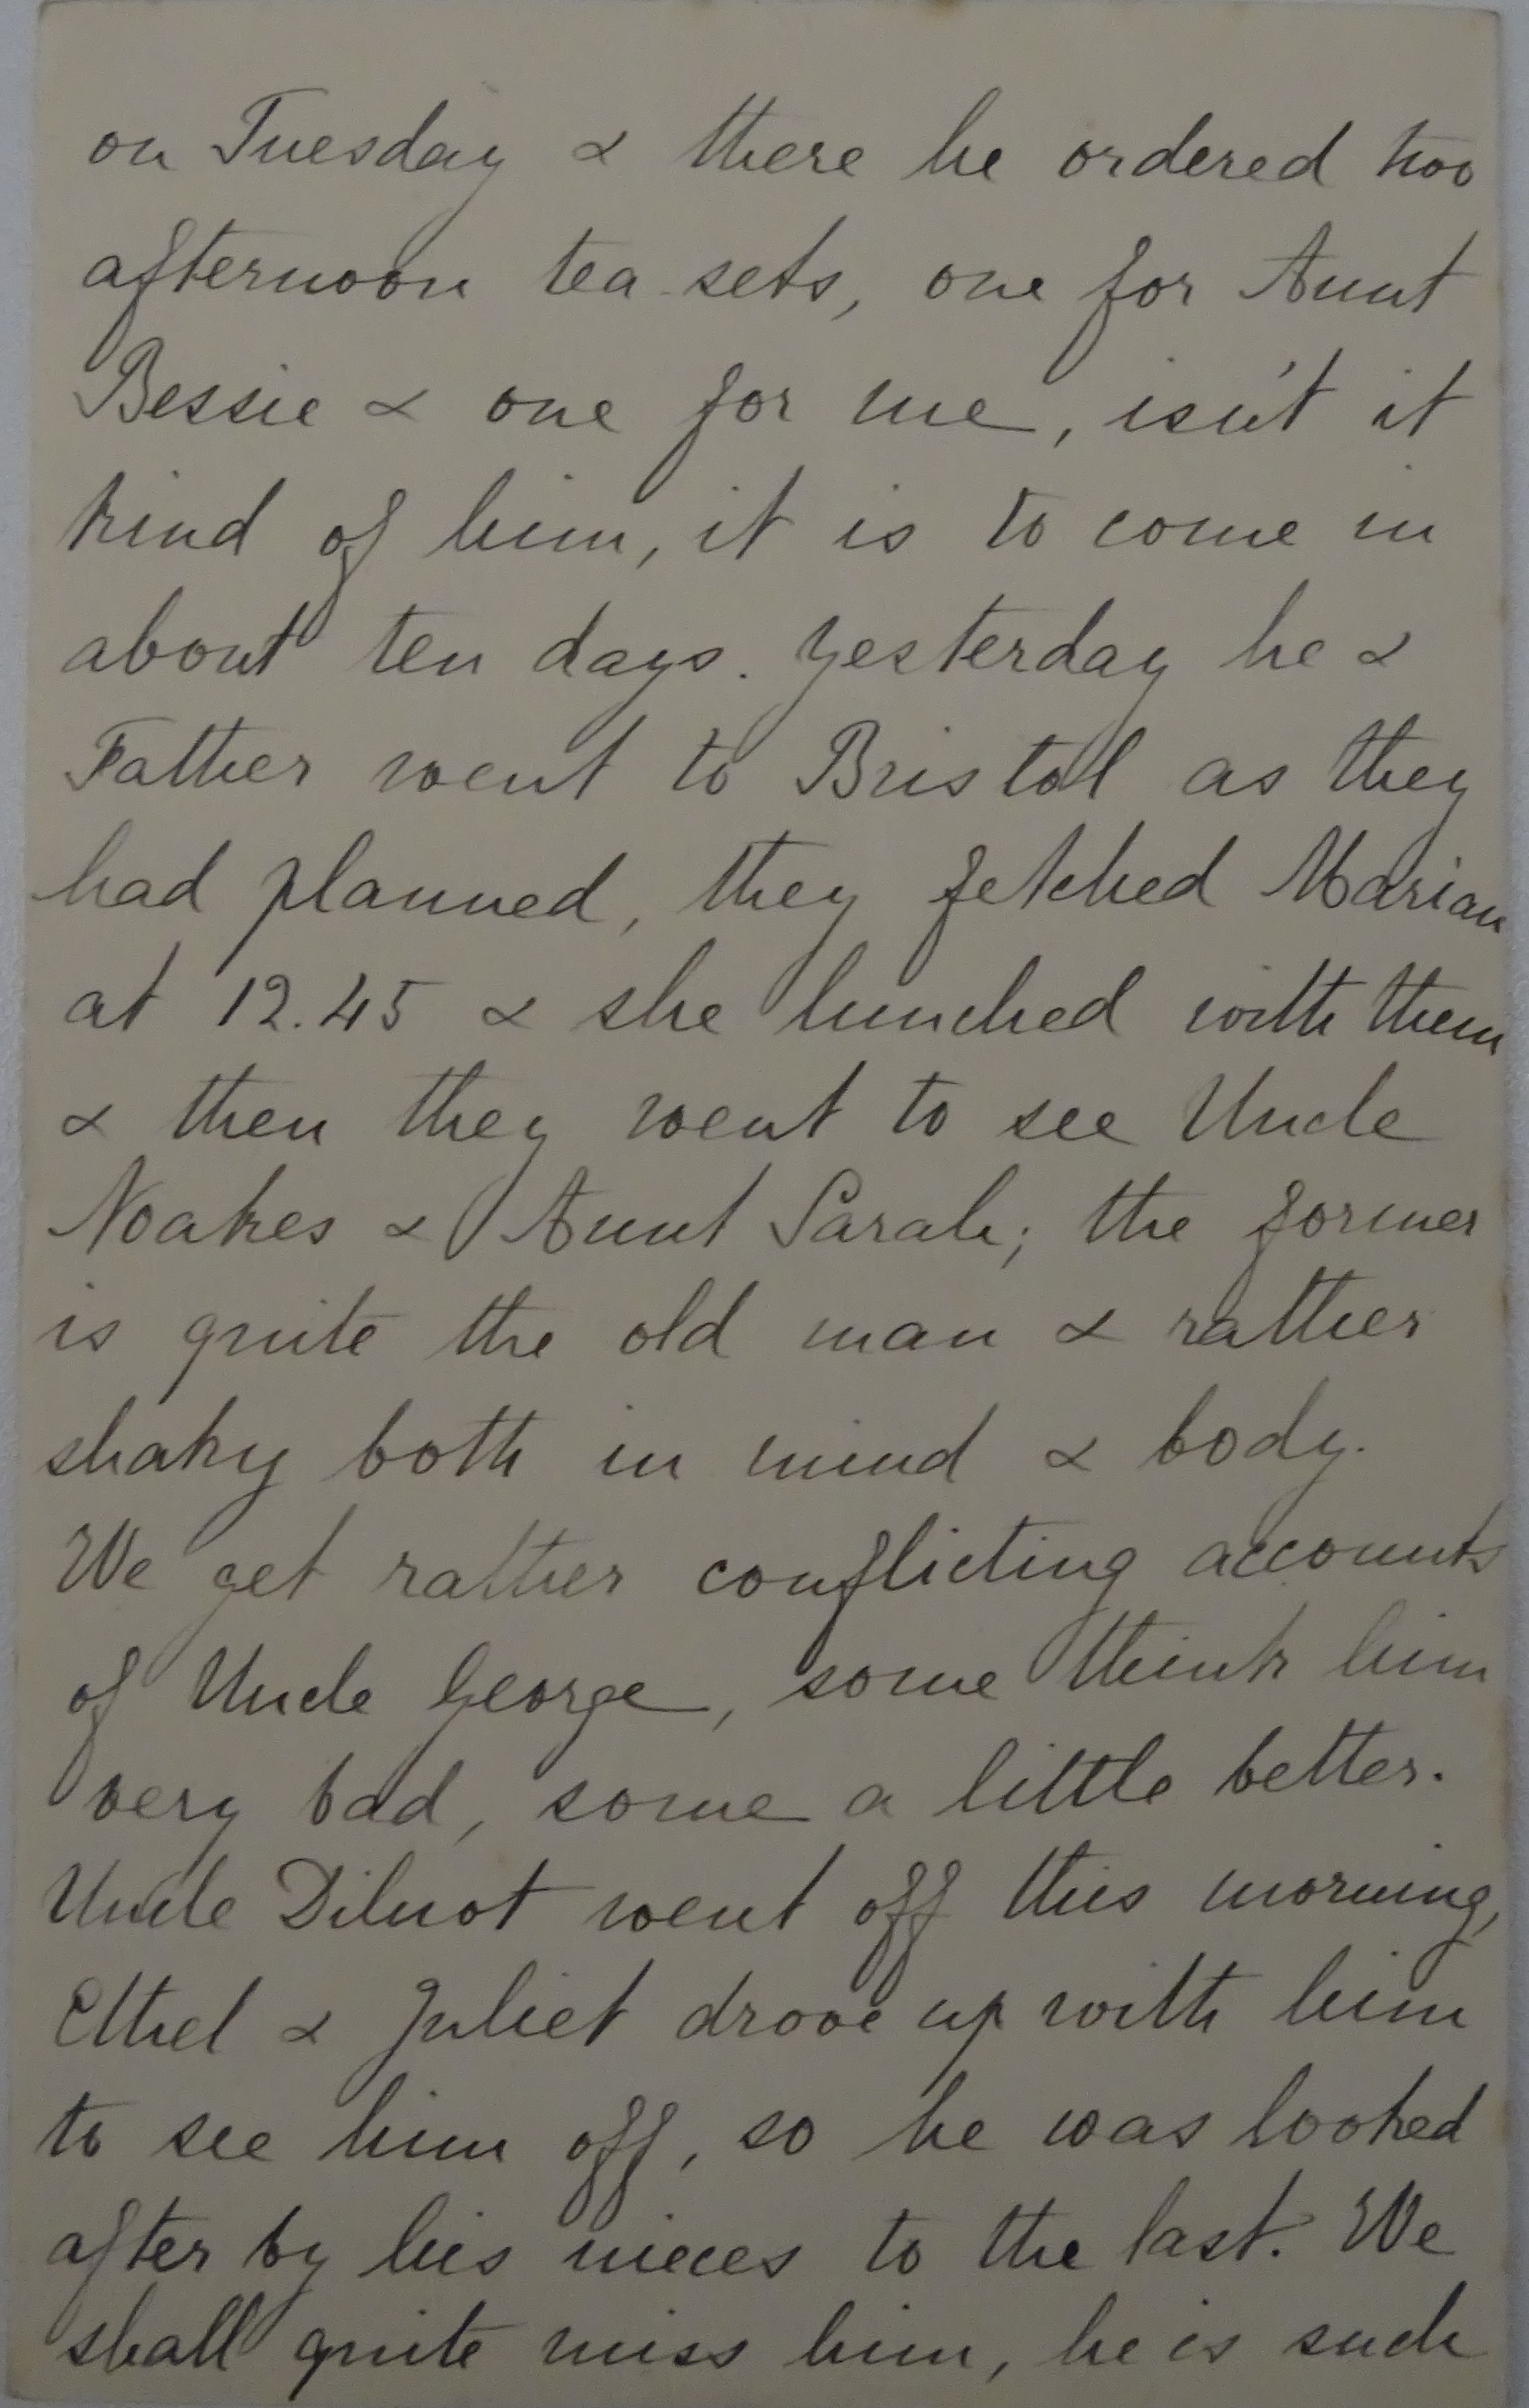 on Tuesday & there he ordered two
afternoon tea sets, one for Aunt
Bessie & one for me, isn't it
kind of him, it is to come in
about ten days. Yesterday he &
Father went to Bristol as they
had planned, they fetched Marian
at 12.45 & she lunched with them
& then they went to see Uncle
Noakes & Aunt Sarah; the former
is quite the old man & rather
shaky both in mind & body.
We get rather conflicting accounts
of Uncle George, some think him
very bad, some a little better.
Uncle Dilnot went off this morning,
Ethel & Juliet drove up with him
to see him off, so he was looked
after by his nieces to the last. We
shall quite miss him, he is such